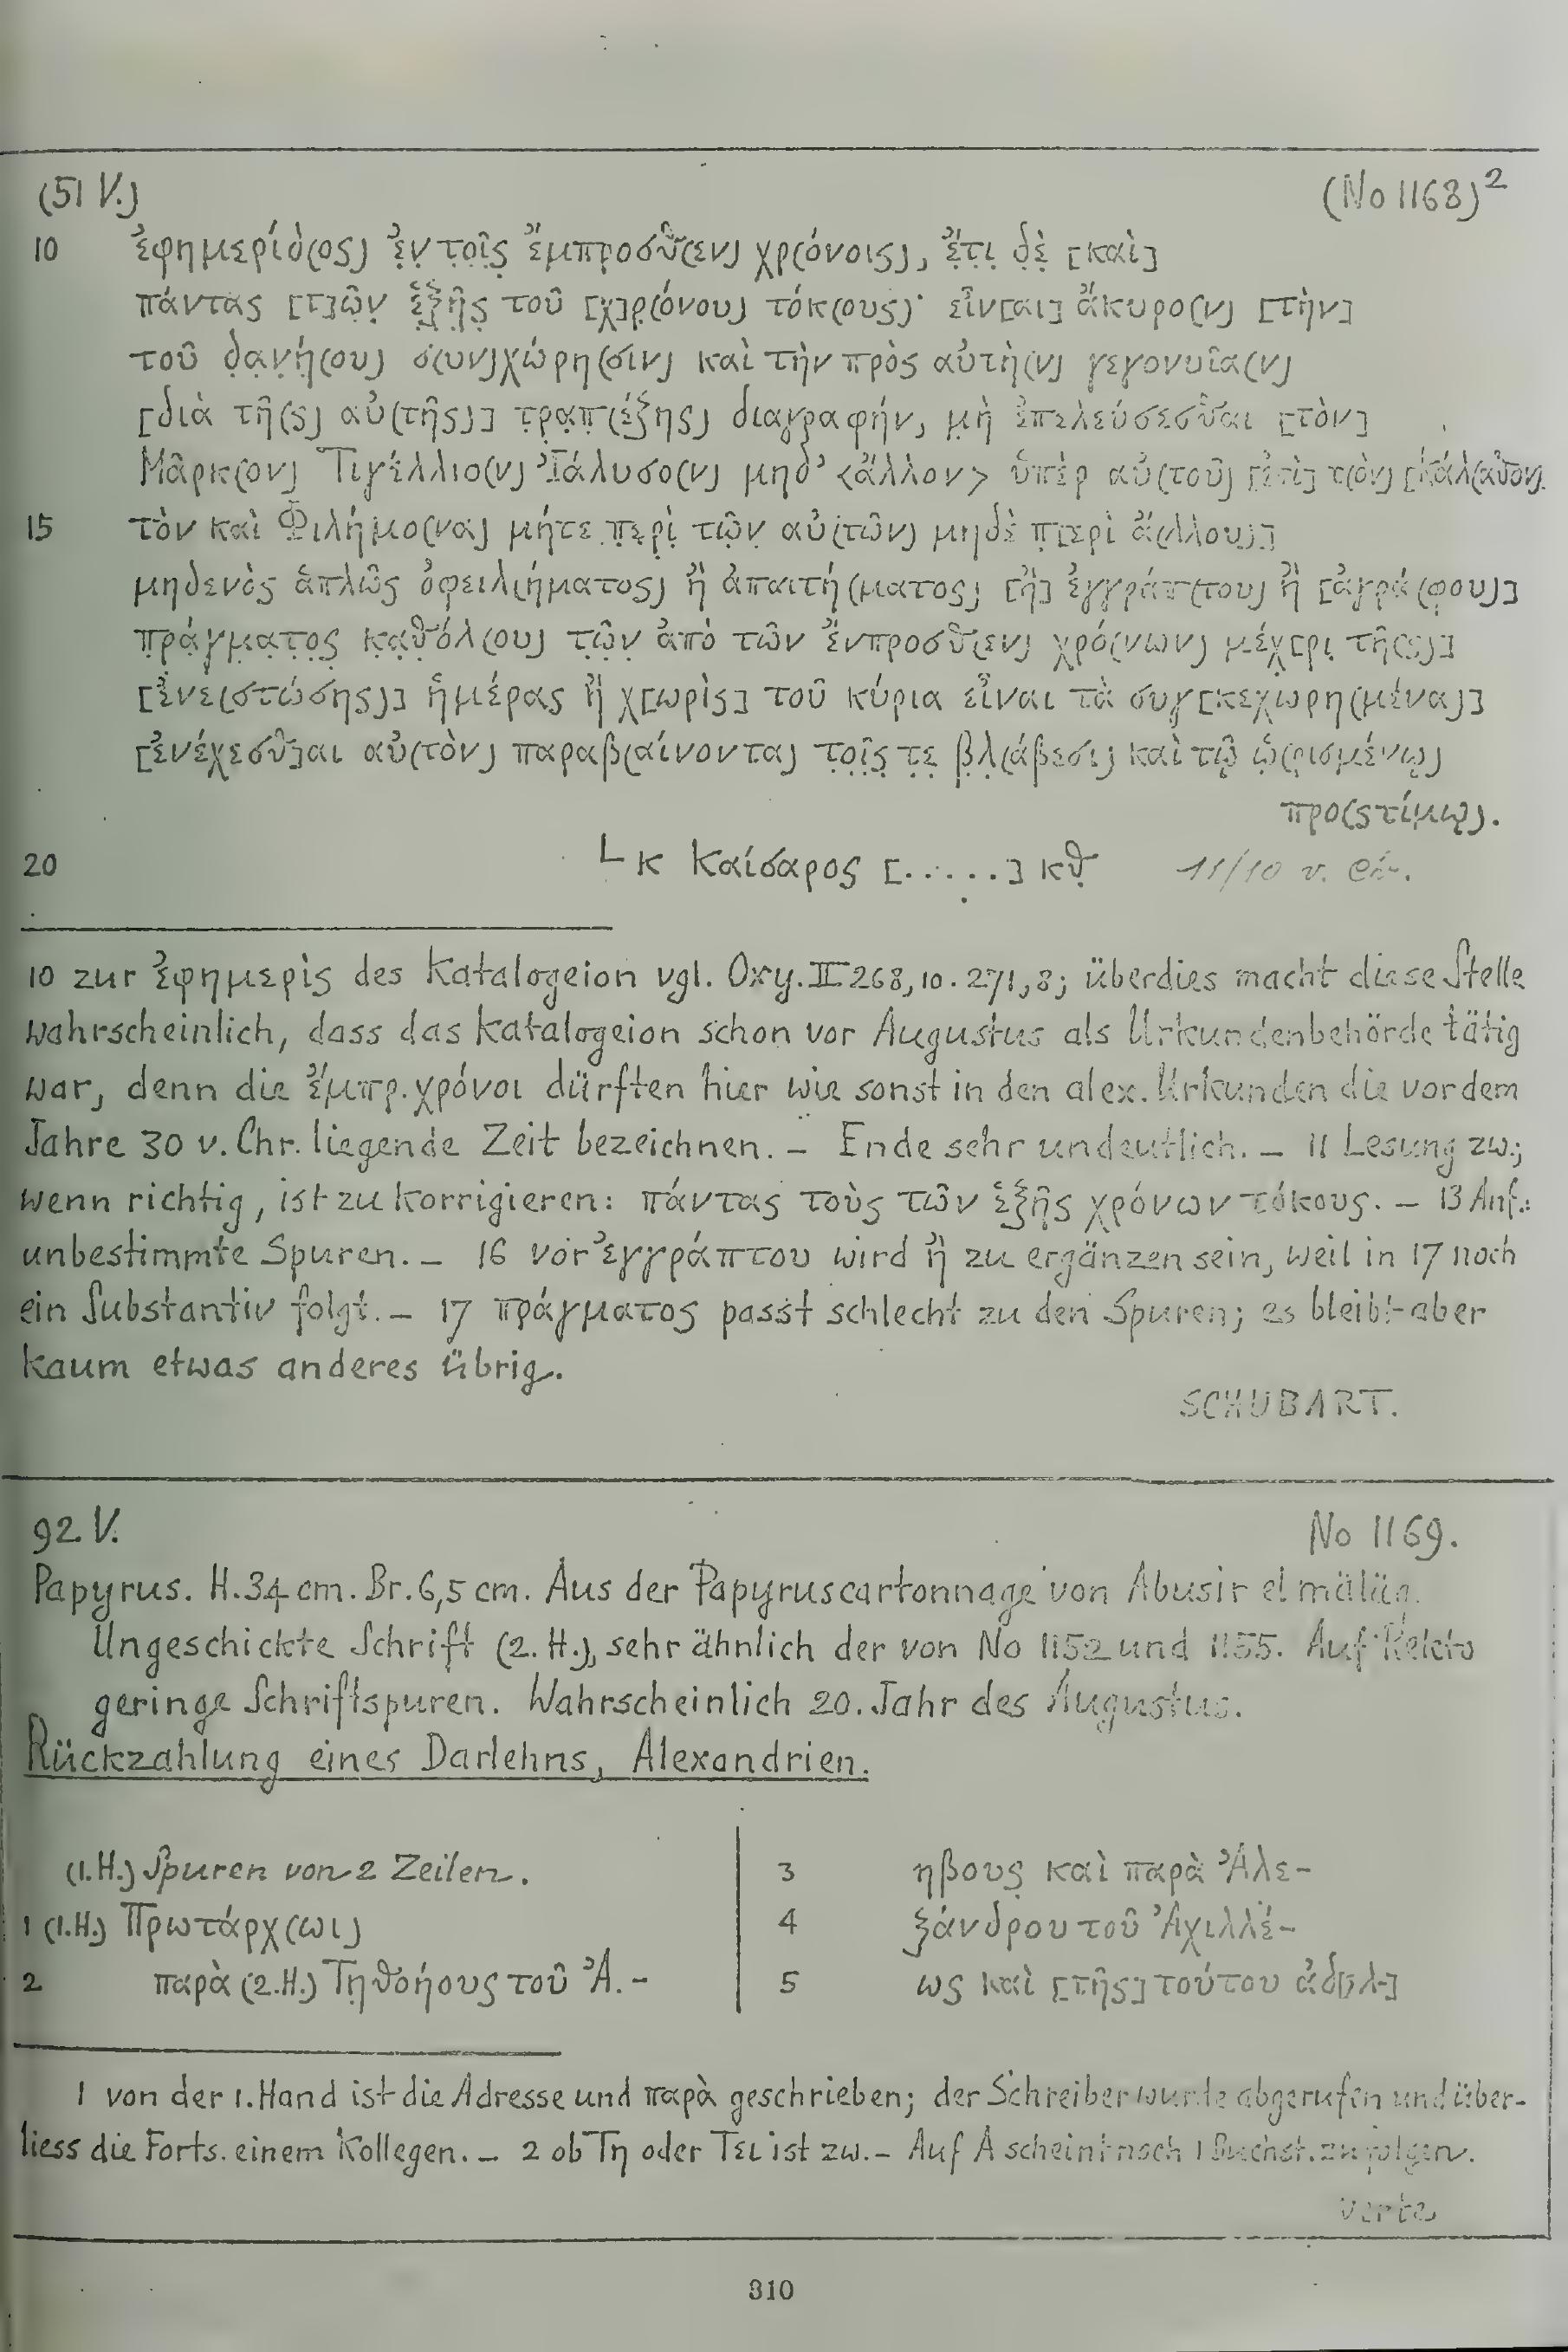 (51 V.) (No 1168)²
10 ἐφημερίδ(ος) ἐ̣ν̣ τ̣ο̣ῖ̣ς̣ ἔμπ̣ροσθ(εν) χρ(όνοις), ἔ̣τ̣ι̣ δ̣ὲ̣ [καὶ]
πάντας [τ]ῶ̣ν̣ ἑ̣ξ̣ῆ̣ς̣ τοῦ [χ]ρ̣(όνου) τόκ(ους)· εἶν[αι] ἄκυρο(ν) [τὴν]
τοῦ δ̣α̣ν̣ή̣(ου) σ(υν)χώρη(σιν) καὶ τὴν πρὸς αὐτὴ(ν) γεγονυῖα(ν)
[διὰ τῆ(ς) αὐ(τῆς)] τ̣ρ̣α̣π̣(έζης) διαγραφήν, μ̣ὴ ἐπελεύσεσθαι [τὸν]
Μᾶρκ(ον) Τιγέλλιο(ν) Ἰάλυσο(ν) μηδ’ <ἄλλον> ὑπὲρ αὐ(τοῦ) [ἐπὶ] τ(ὸν)
15 τὸν καὶ Φιλήμο(να) μήτε π̣ε̣ρ̣ὶ̣ τῶ̣ν̣ αὐ(τῶν) μηδὲ π̣[ερὶ ἄ(λλου)]
μηδενὸς ἁπλῶς ὀφειλ(ήματος) ἢ ἀπαιτή(ματος) [ἢ] ἐγγράπ(του) ἢ [ἀγρά(φου)]
π̣ρ̣ά̣γ̣μ̣α̣τ̣ο̣ς̣ κ̣α̣θ̣όλ(ου) τ̣ῶ̣ν̣ ἀπὸ τῶν ἔνπροσθ(εν) χρό(νων) μέχ̣[ρι τῆ(ς)]
[ἐνε(στώσης)] ἡμέρας ἢ χ[ωρὶς] τοῦ κύρια εἶναι τὰ συγ[κεχωρη(μένα)]
[ἐνέχεσθ]αι αὐ(τὸν) παραβ(αίνοντα) τ̣ο̣ῖ̣ς̣ τ̣ε̣ β̣λ̣(άβεσι) καὶ τῷ ὡ̣(ρισμένῳ)
προ(στίμῳ).
20 └ κ Καίσαρος [.....] κθ̣ 11/10 v. Chr.
10 zur ἐφημερὶς des Katalogeion vgl. Oxy. II 268,10. 271,8; überdies macht diese Stelle
wahrscheinlich, dass das Katalogeion schon vor Augustus als Urkundenbehörde tätig
war, denn die ἔμπρ. χρόνοι dürften hier wie sonst in den alex. Urkunden die vor dem
Jahre 30 v. Chr. liegende Zeit bezeichnen. – Ende sehr undeutlich. – 11 Lesung zw.;
wenn richtig, ist zu korrigieren: πάντας τοὺς τῶν ἑξῆς χρόνων τόκους. – 13 Anf.:
unbestimmte Spuren. – 16 vor ἐγγράπτου wird ἢ zu ergänzen sein, weil in 17 noch
ein Substantiv folgt. – 17 πράγματος passt schlecht zu den Spuren; es bleibt aber
kaum etwas anderes übrig.
SCHUBART.
92 V. No 1169.
Papyrus. H. 34 cm. Br. 6,5 cm. Aus der Papyruscartonnage von Abusir el mäläq.
Ungeschickte Schrift (2. H.), sehr ähnlich der von No 1152 und 1155. Auf Rekto
geringe Schriftspuren. Wahrscheinlich 20. Jahr des Augustus.
Rückzahlung eines Darlehns, Alexandrien.
(1.H.) Spuren von 2 Zeilen.
1 (1.H.) Πρωτάρχ(ωι)
2 παρὰ (2.H.) Τη̣θοήους τοῦ Ἀ. –
3 ηβους̣ καὶ παρὰ Ἀλε-
4 ξάνδρου τοῦ Ἀχιλλέ-
5 ως καὶ [τῆς] τούτου ἀδ[ελ-]
1 von der 1. Hand ist die Adresse und παρὰ geschrieben; der Schreiber wurde abgerufen und über-
liess die Forts. einem Kollegen. – 2 ob Τη oder Τει ist zw. – Auf Α scheint noch 1 Buchst. zu folgen.
verte
310